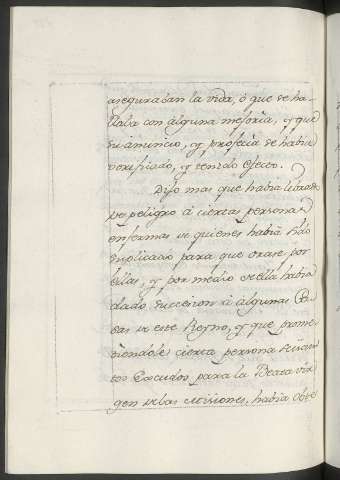 aseguraban la vida, ó que se ha-
llaba con alguna mejoria, y que
su anuncio, y profecia se habia
verificado, y tenido efecto.
Dijo mas que habia librado
de peligro á ciertas personas
enfermas de quienes habia sido
suplicado para que orase por
ellas, y por medio de ella habia
dado succesion á algunas Ca-
sas de este Reyno, y que prome-
tiendole cierta persona
tos Escudos para la Beata vir
gen de las Misiones, habia obte